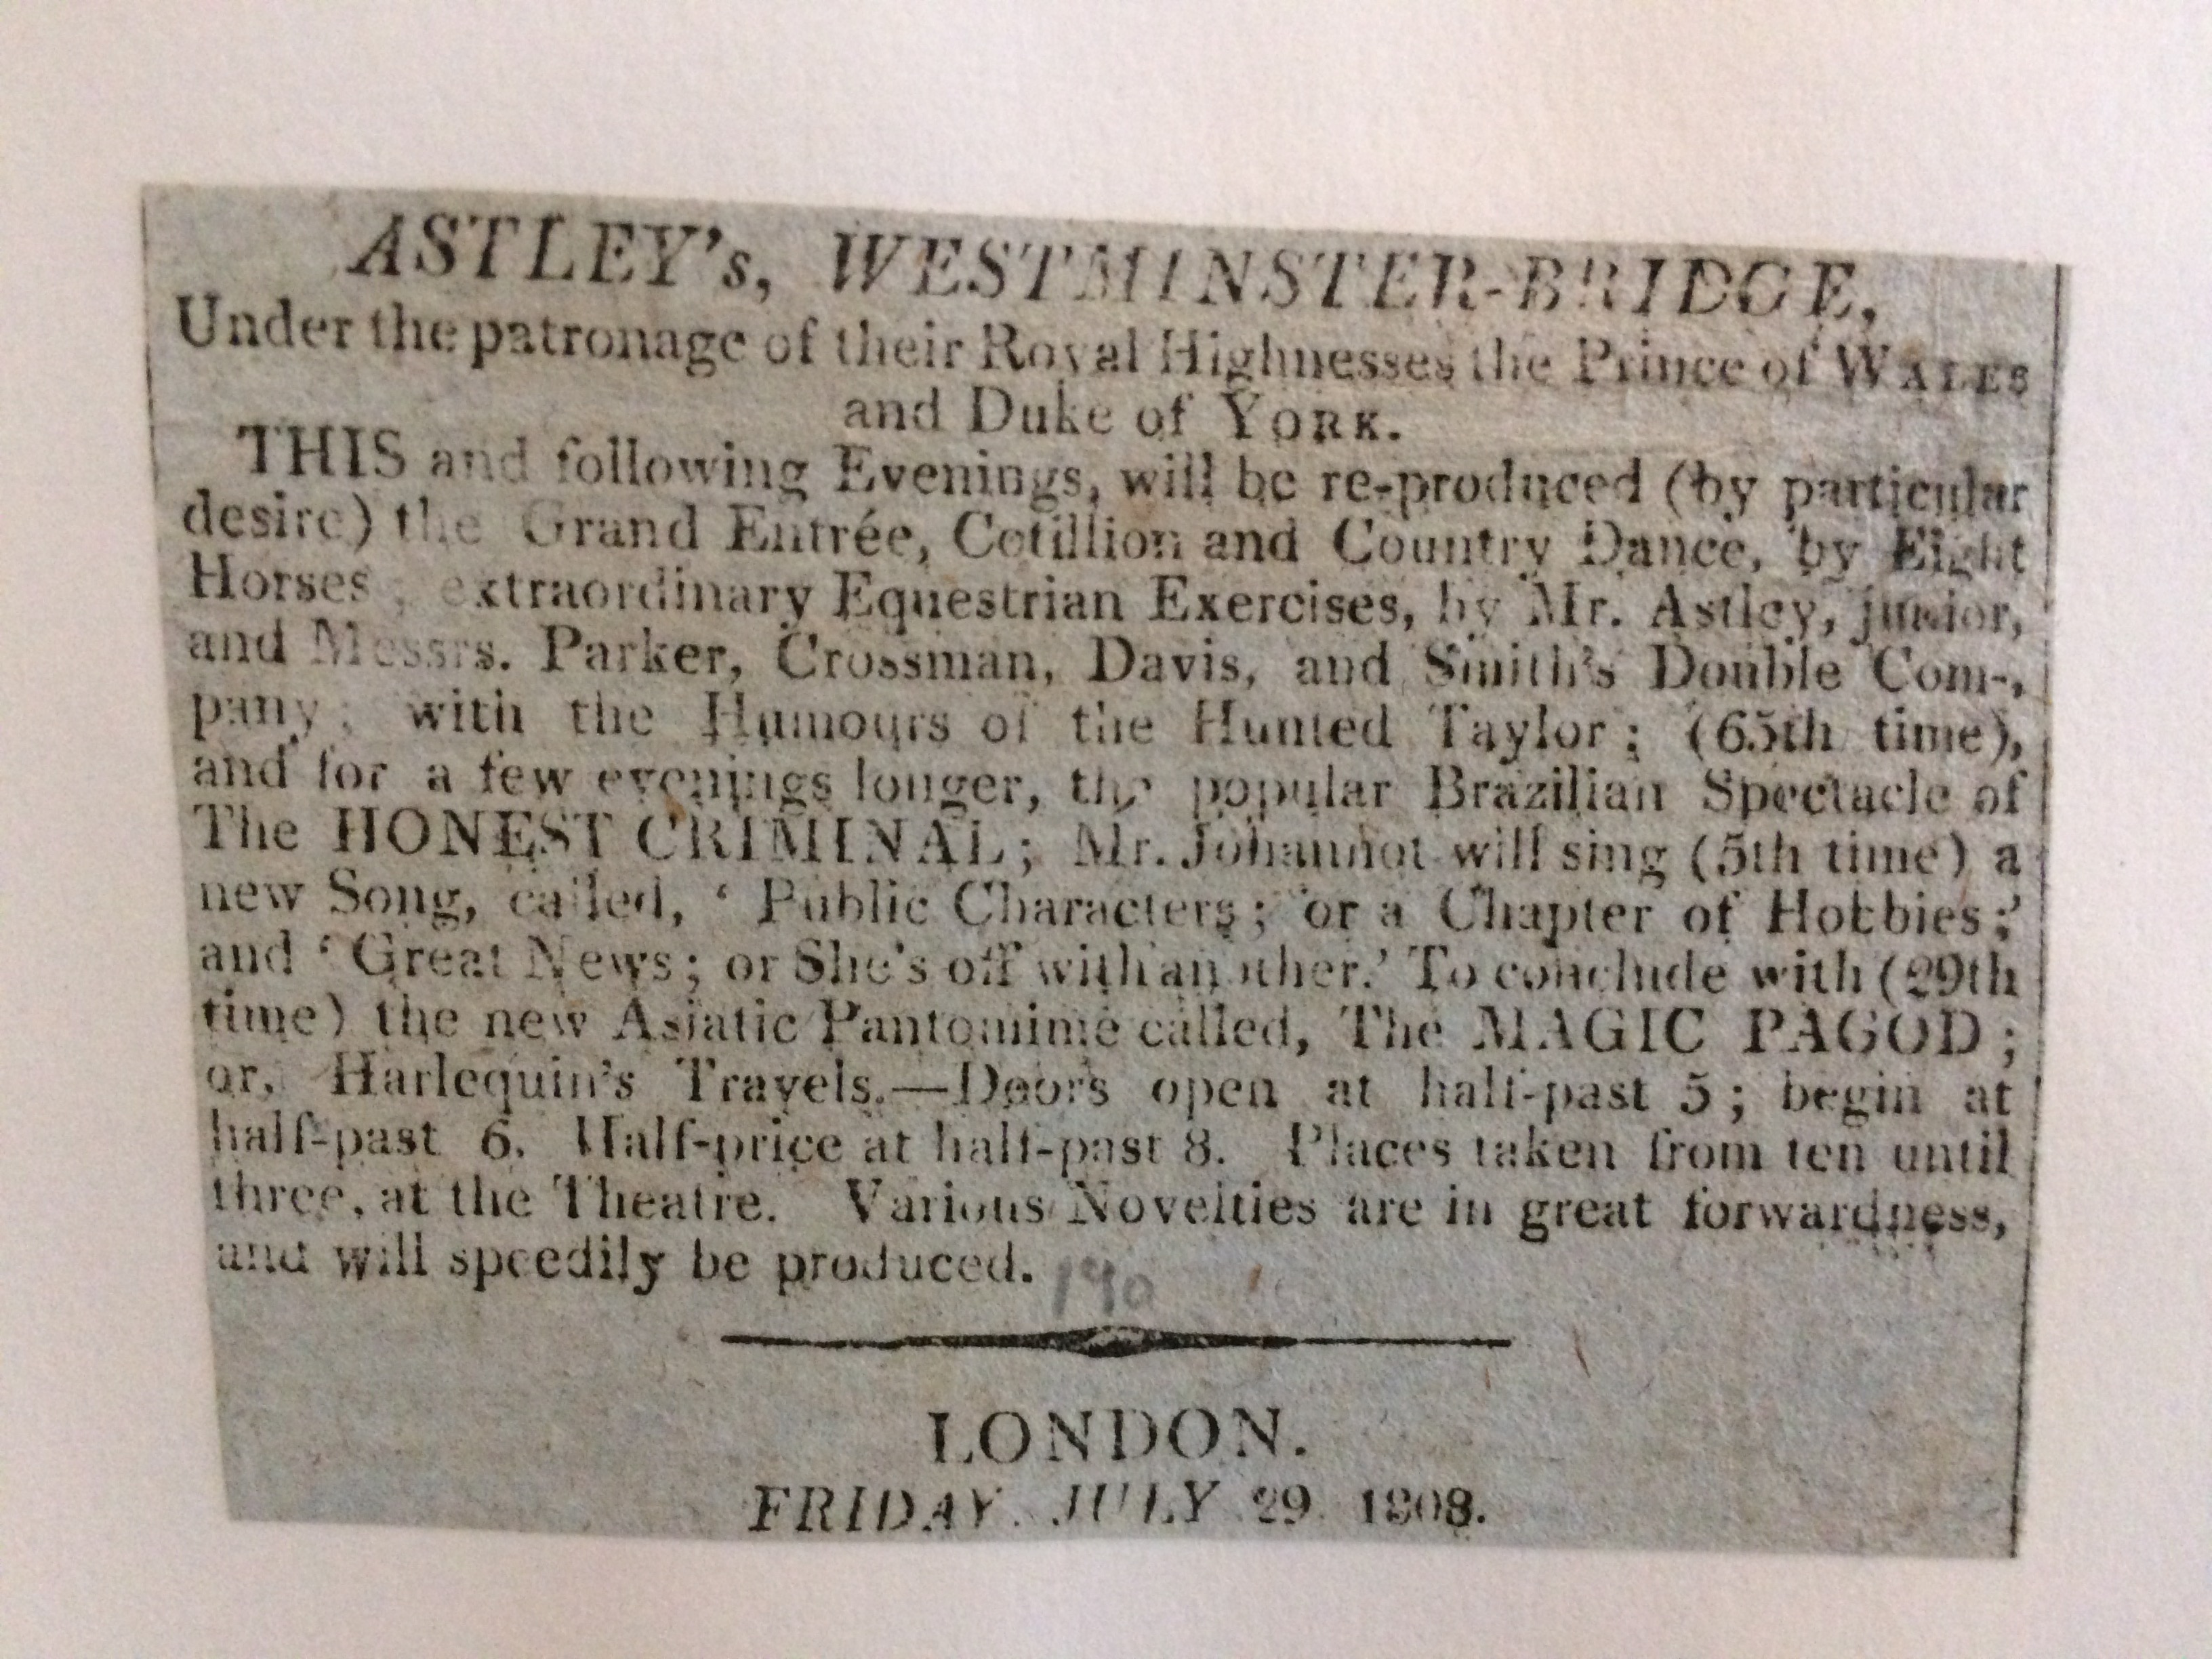 ASTLEY's, WESTMINSTER-BRIDGE,
Under the patronage of their Royal Highnesses the Prince of WALES
and Duke of YORK.
THIS and following Evenings, will be re-produced (by particular
desire) the Grand Entrée, Cotillion and Country Dance, by Eight
Horses; extraordinary Equestrian Exercises, by Mr. Astley, junior,
and Messrs. Parker, Crossman, Davis, and Smith's Double Com-
pany; with the Humours of the Hunted Taylor; (65th time),
and for a few evenings longer, the popular Brazilian Spectacle of
The HONEST CRIMINAL; Mr. Johannot will sing (5th time) a
new Song, called, ‘Public Characters; or a Chapter of Hobbies;’
and ‘Great News; or She's off with another.’ To conclude with (29th
time) the new Asiatic Pantomime called, The MAGIC PAGOD;
or, Harlequin's Travels.—Doors open at half-past 5; begin at
half-past 6. Half-price at half-past 8. Places taken from ten until
three, at the Theatre. Various Novelties are in great forwardness,
and will speedily be produced.
190
LONDON.
FRIDAY, JULY 29, 1808.